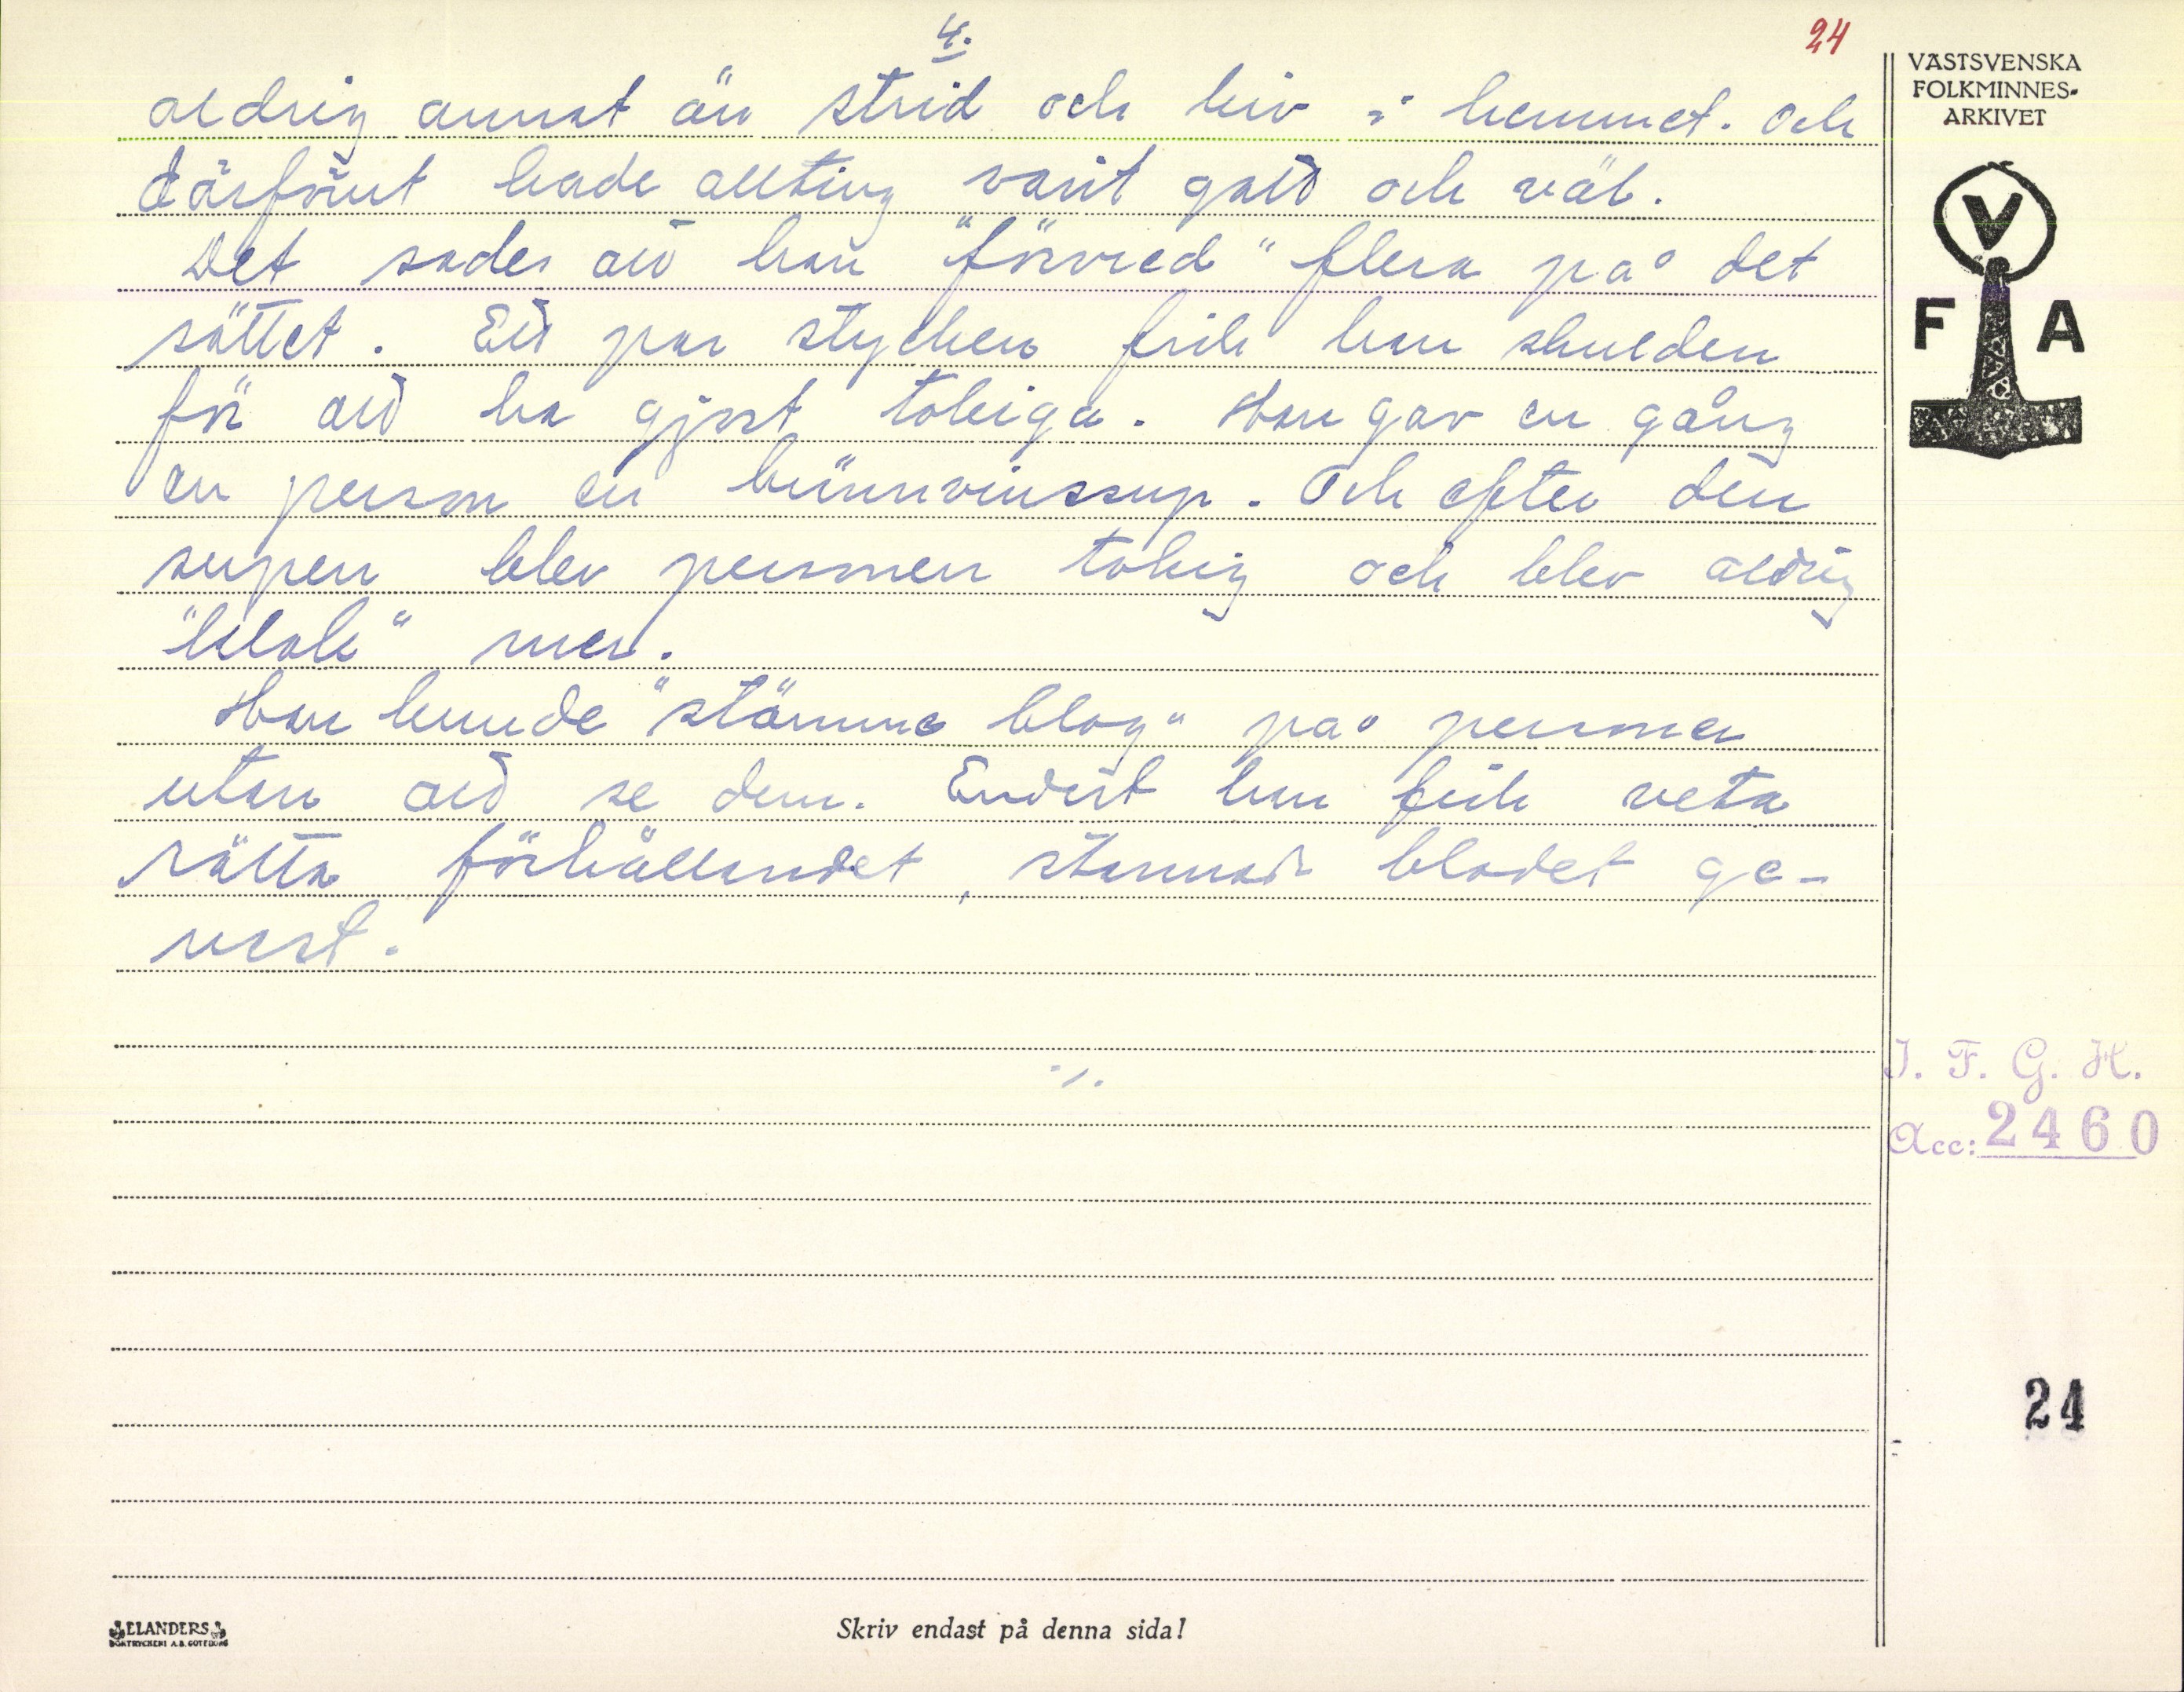 4.
24
aldrig annat än strid och kiv i hemmet. Och
därförut hade allting varit gott och väl.
Det sades att han "förvred" flera på det
sättet. Ett par stycken fick han skulden
för att ha gjort tokiga. Han gav en gång
en person en brännvinssup. Och efter den
supen blev personen tokig och blev aldrig
"klok" mer.
Han kunde "stämma blog" på personer
utan att se dem. Endast han fick veta
rätta förhållandet, stannade blodet ge-
nast.
./.
VÄSTSVENSKA
FOLKMINNES-
ARKIVET
V
F A
I. F. G. H.
Acc: 2460
24
ELANDERS
BOKTRYCKERI A.B. GÖTEBORG
Skriv endast på denna sida!